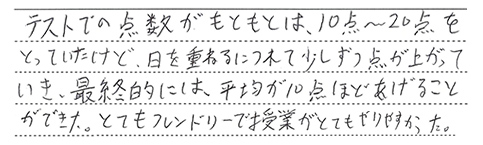 テストでの点数がもともとは、10点〜20点を
とっていたけど、日を重ねるにつれて少しずつ点が上がって
いき、最終的には、平均が10点ほどあげること
ができた。とてもフレンドリーでお授業がとてもやりやすかった。